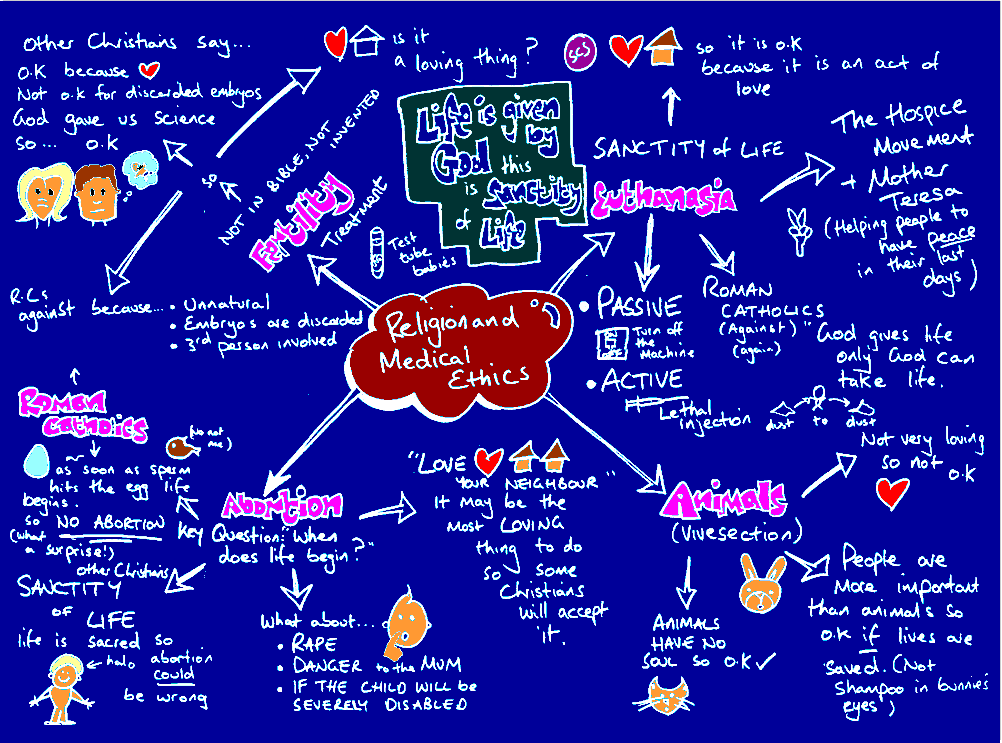 Religion and
Medical
Ethics
Life is given
by
God this
is Sanctity
of
Life
Fertility
Treatment
Test
tube
babies
NOT IN BIBLE, NOT
INVENTED
so
is it
a loving thing?
Other Christians say...
O.K because
Not o.k for discarded embryos
God gave us science
so... o.k
R.Cs
against because...
• Unnatural
• Embryos are discarded
• 3rd person involved
Euthanasia
SANCTITY of LIFE
so it is o.k
because it is an act of
love
The Hospice
Movement
+ Mother
Teresa
(Helping people to
have peace
in their last
days)
• PASSIVE
Turn off
the
Machine
• ACTIVE
Lethal
injection
ROMAN
CATHOLICS
(Against)
(again)
"God gives life
only God can
take life.
dust to dust
Animals
(Vivesection)
Not very loving
so not
O.K
People are
More important
than animals so
O.K if lives are
saved. (Not
Shampoo in bunnies'
eyes')
ANIMALS
HAVE NO
SOUL SO O.K ✓
Abortion
Key
Question: "When
does life begin?"
"LOVE
YOUR NEIGHBOUR"
It may be the
Most LOVING
thing to do
so some
Christians
will accept
it.
What about...
• RAPE
• DANGER to the MUM
• IF THE CHILD WILL BE
SEVERELY DISABLED
Roman
Catholics
(No not
me)
as soon as sperm
hits the egg life
begins.
so NO ABORTION
(what
a surprise!)
other Christians
SANCTITY
OF
LIFE
life is sacred so
halo
abortion
could
be wrong